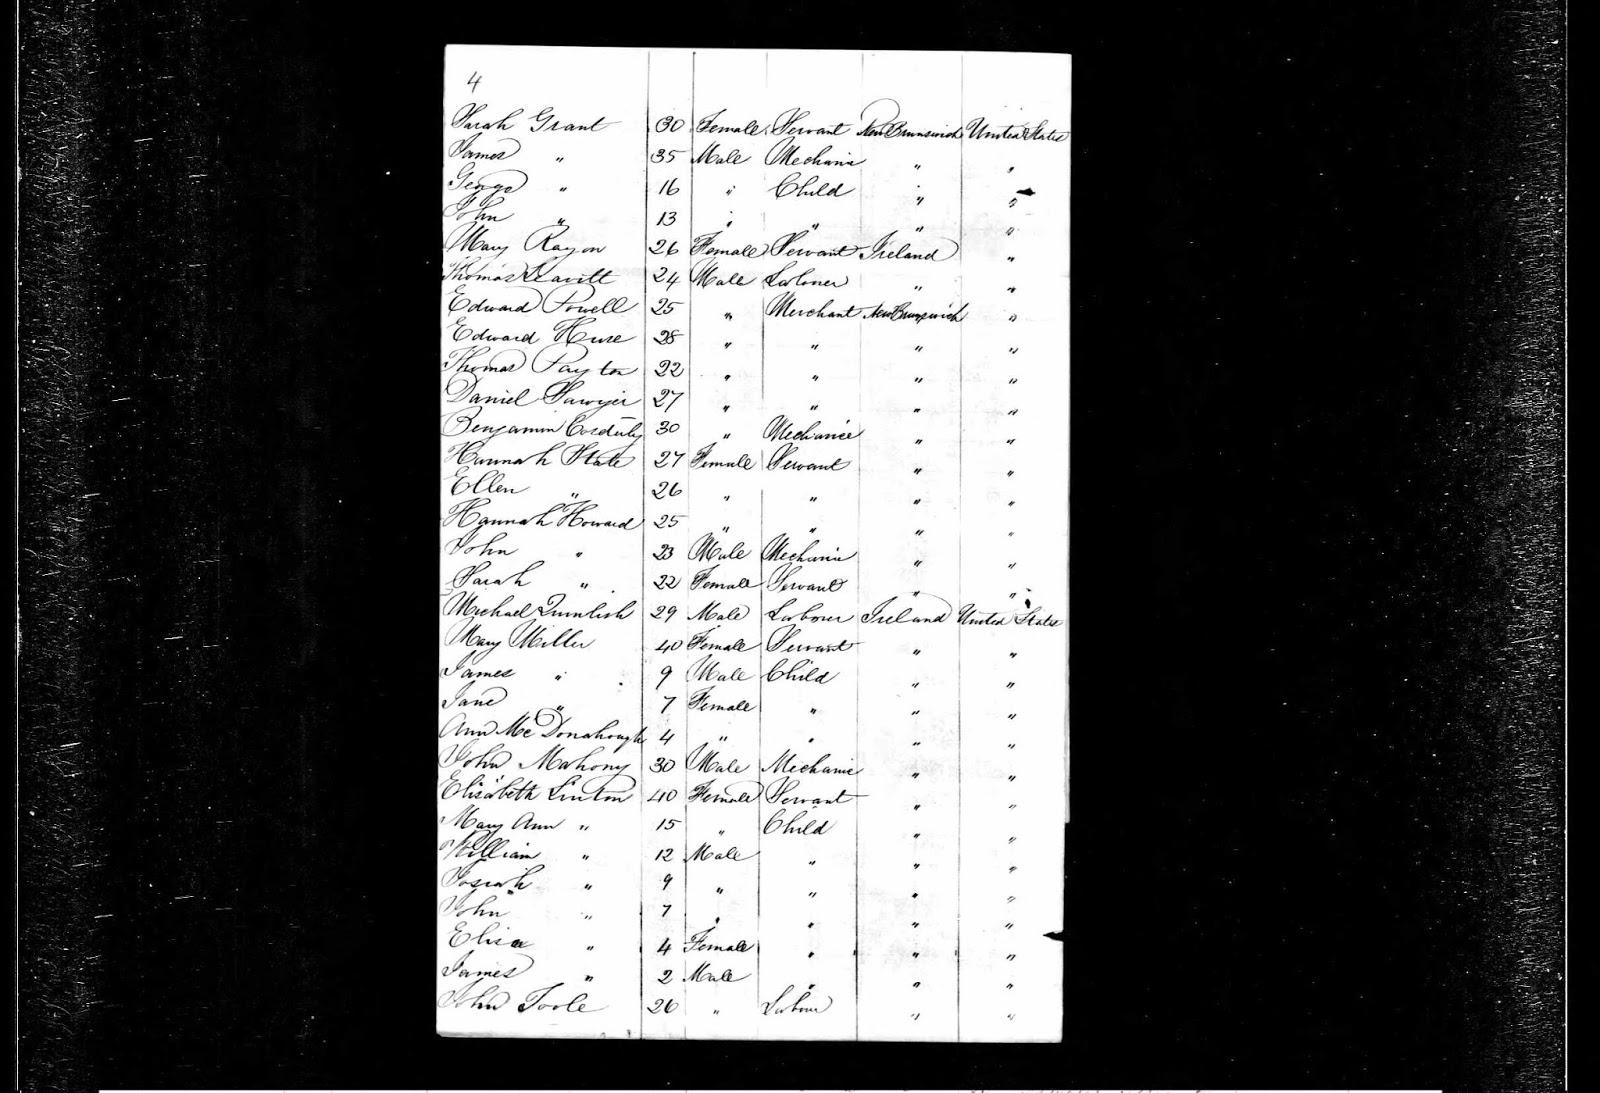 4
Sarah Grant 30 Female Servant New Brunswick United States
James " 35 Male Mechanic " "
" 16 " Child " "
John " 13 " " " "
Mary 26 Female Servant Ireland "
Thomas 24 Male Laborer " "
Edward Powell 25 " Merchant New Brunswick "
Edward 28 " " " "
Thomas Payton 22 " " " "
Daniel Sawyer 27 " " " "
Benjamin 30 " Mechanic " "
Hannah State 27 Female Servant " "
Ellen " 26 " " " "
Hannah Howard 25 " " " "
John " 23 Male Mechanic " "
Sarah " 22 Female Servant " "
Michael Quinlish 29 Male Labour Ireland United States
Mary Miller 40 Female Servant " "
James " 9 Male Child " "
Jane " 7 Female " " "
Ann McDonahough 4 " " " "
John Mahony 30 Male Mechanic " "
Elisabeth Linton 40 Female Servant " "
Mary Ann " 15 " Child " "
William " 12 Male " " "
Josiah " 9 " " " "
John " 7 " " " "
Elisa " 4 Female " " "
James " 2 Male " " "
John Toole 26 " Labour " "